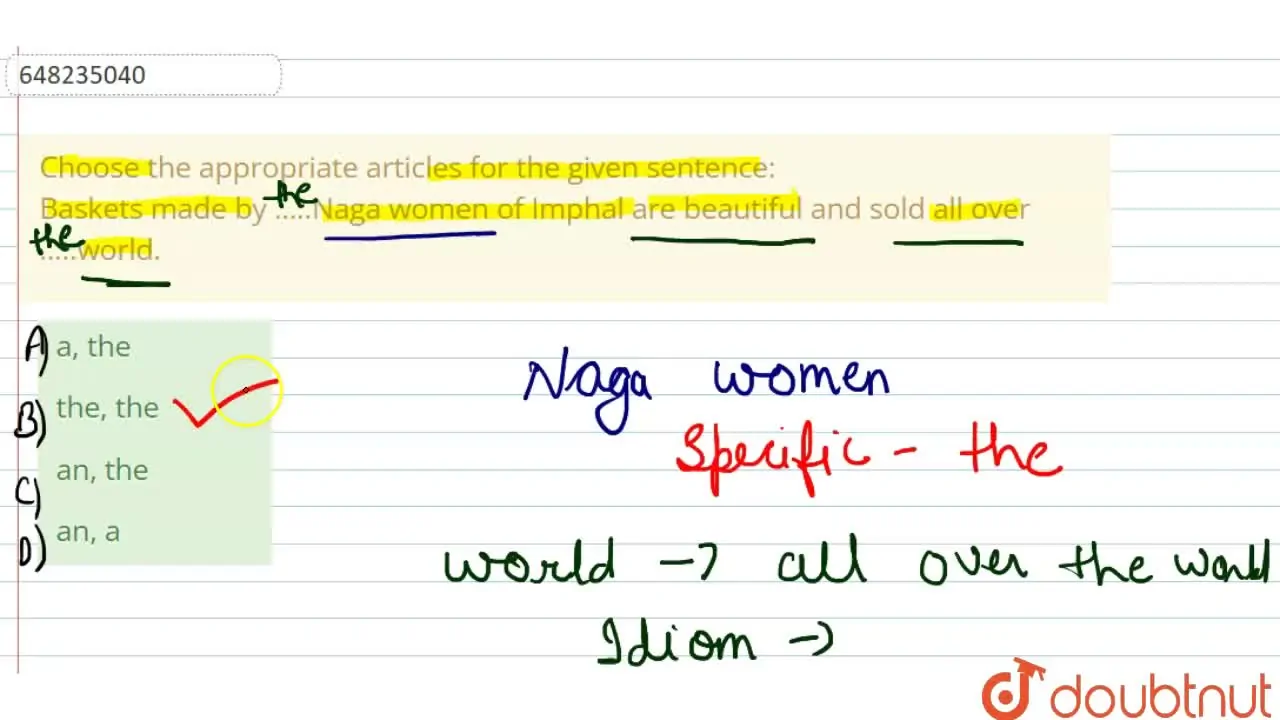 648235040
Choose the appropriate articles for the given sentence:
the
Baskets made by .....Naga women of Imphal are beautiful and sold all over
the
.....world.
A) a, the
B) the, the
C) an, the
D) an, a
Naga women
Specific - the
world → all over the world
Idiom →
doubtnut